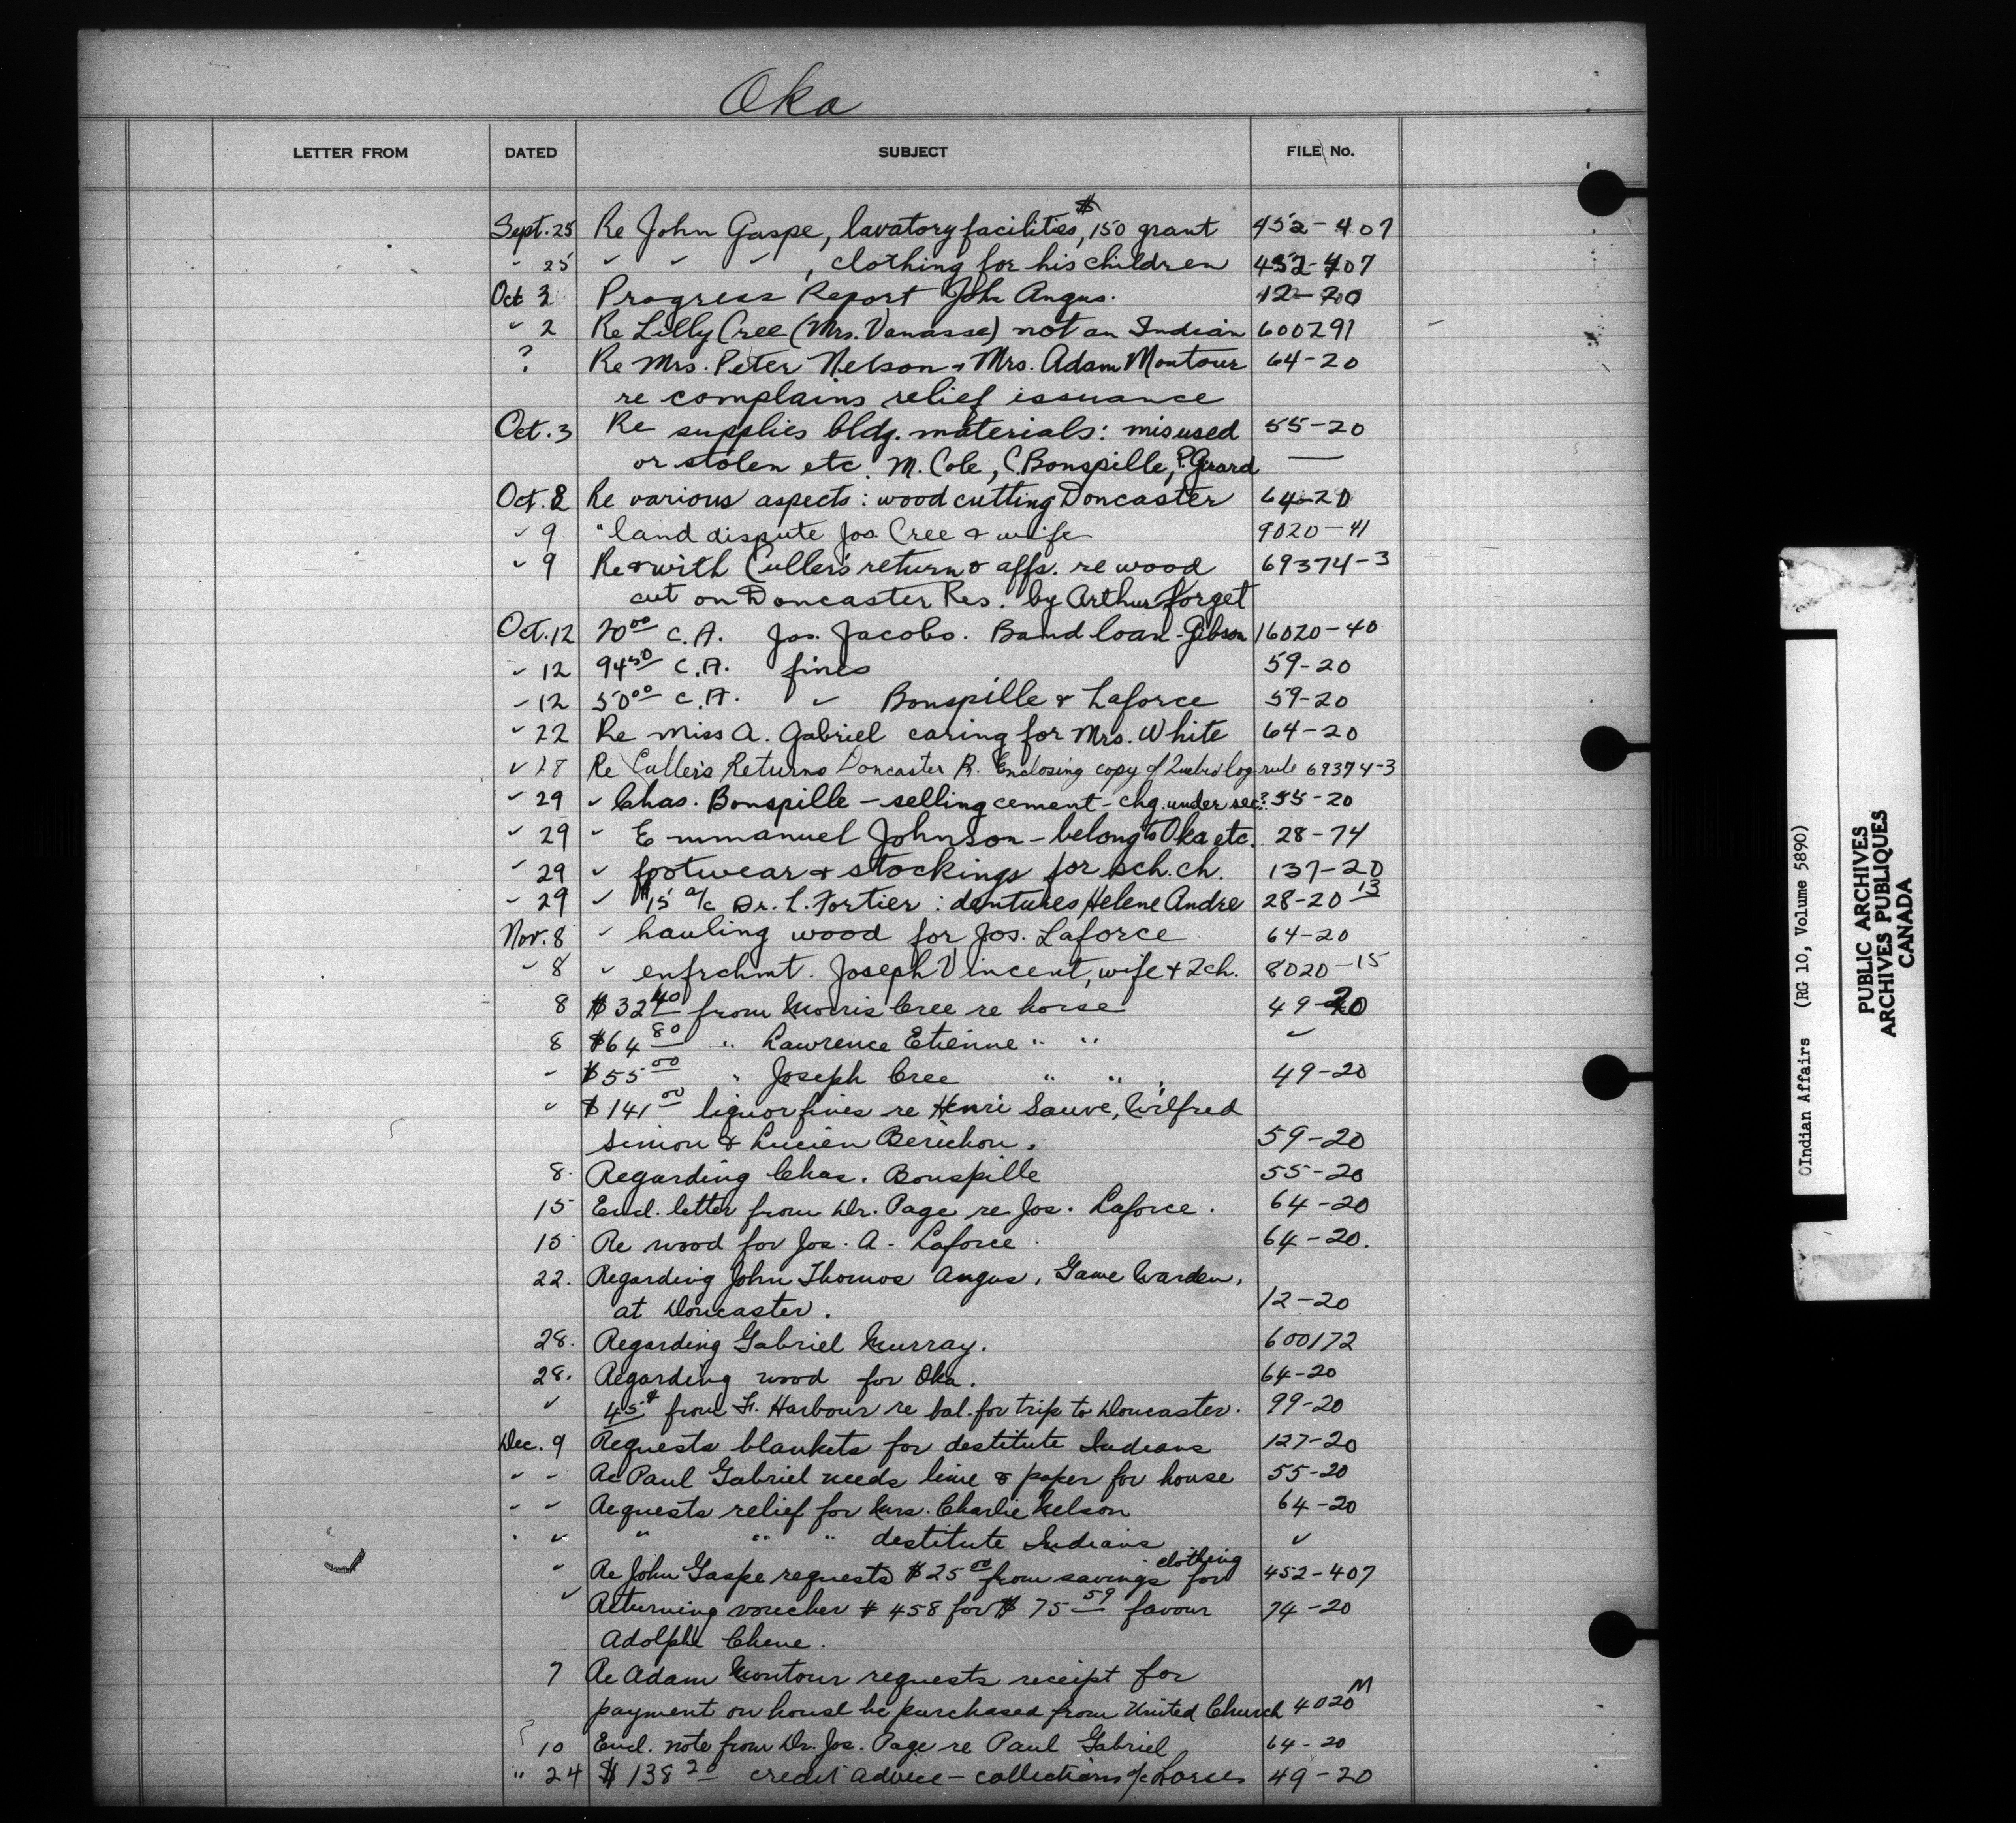 Oka
LETTER FROM DATED SUBJECT FILE No.
Sept. 25 Re John Gaspe, lavatory facilities, $150 grant 452-407
" 25 " " " , clothing for his children 452-407
Oct 2 Progress Report John Angus. 12-20
" 2 Re Lilly Cree (Mrs. Vanasse) not an Indian 600291
? Re Mrs. Peter Nelson & Mrs. Adam Montour 64-20
re complains relief issuance
Oct. 3 Re supplies bldg. materials: misused 55-20
or stolen etc. M. Cole, C. Bonspille, P. Girard —
Oct. 8 Re various aspects: wood cutting Doncaster 64-20
" 9 " land dispute Jos. Cree & wife 9020-41
" 9 Re & with Culler's return & affs. re wood 69374-3
cut on Doncaster Res. by Arthur Forget
Oct. 12 20.00 C.A. Jos. Jacobs. Band loan - Gibson 16020-40
" 12 94.50 C.A. fines 59-20
" 12 50.00 C.A. " Bonspille & Laforce 59-20
" 22 Re Miss A. Gabriel caring for Mrs. White 64-20
" 17 Re Culler's Returns Doncaster R. Enclosing copy of Quebec log rule 69374-3
" 29 " Chas. Bonspille - selling cement - chg. under sec? 55-20
" 29 " Emmanuel Johnson - belong to Oka etc. 28-74
" 29 " footwear & stockings for sch. ch. 137-20
" 29 " $15 a/c Dr. L. Fortier : dentures Helene Andre 28-20 13
Nov. 8 " hauling wood for Jos. Laforce 64-20
" 8 " enfrchmt. Joseph Vincent, wife & 2 ch. 8020-15
8 $32.40 from Morris Cree re horse 49-20
8 $64.80 " Lawrence Etienne " " "
" $55.00 " Joseph Cree " " 49-20
" $141.00 liquor fines re Henri Sauve, Wilfred
Simon & Lucien Berichon. 59-20
8. Regarding Chas. Bonspille 55-20
15 Encl. letter from Dr. Page re Jos. Laforce. 64-20
15 Re wood for Jos. A. Laforce. 64-20.
22. Regarding John Thomas Angus, Game Warden,
at Doncaster. 12-20
28. Regarding Gabriel Murray. 600172
28. Regarding wood for Oka. 64-20
" 45¢ from Fr. Harbour re bal. for trip to Doncaster. 99-20
Dec. 9 Requests blankets for destitute Indians 127-20
" " Re Paul Gabriel needs lime & paper for house 55-20
" " Requests relief for Mrs. Charlie Nelson 64-20
" " " " " destitute Indians "
" Re John Gaspe requests $25.00 from savings for clothing 452-407
" Returning voucher # 458 for $ 75.59 favour 74-20
Adolphe Chene.
7 Re Adam Montour requests receipt for
payment on house he purchased from United Church 4020 M
10 Encl. note from Dr. Jos. Page re Paul Gabriel 64-20
" 24 $138.20 credit advice - collections a/c Horses 49-20
©Indian Affairs (RG 10, Volume 5890)
PUBLIC ARCHIVES
ARCHIVES PUBLIQUES
CANADA